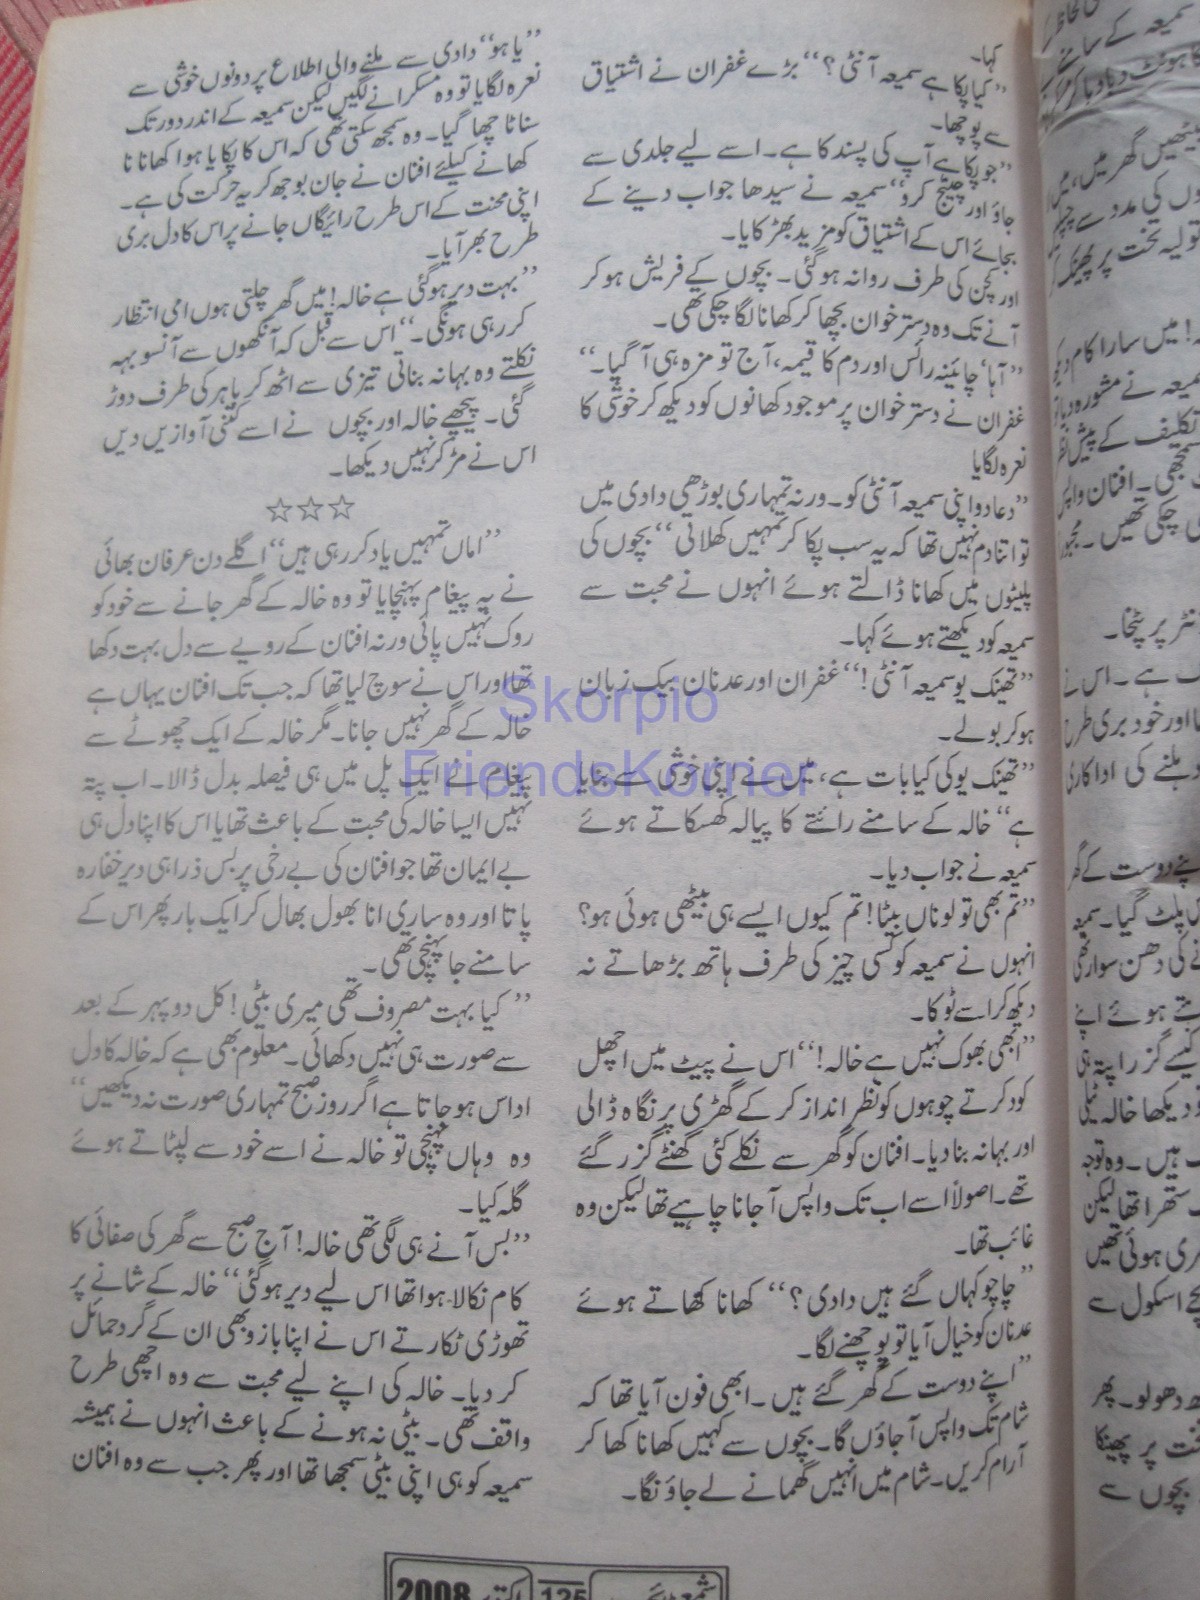 کہا۔
”کیا پکا ہے سمیعہ آنٹی؟“ بڑے غفران نے اشتیاق
سے پوچھا۔
”جو پکا ہے آپ کی پسند کا ہے۔ اسے لیے جلدی سے
جاؤ اور چینج کرو“ سمیعہ نے سیدھا جواب دینے کے
بجائے اس کے اشتیاق کو مزید بھڑکایا۔
اور کچن کی طرف روانہ ہو گئی۔ بچوں کے فریش ہو کر
آنے تک وہ دسترخوان بچھا کر کھانا لگا چکی تھی۔
”آہا، چائینہ رائس اور دم کا قیمہ، آج تو مزہ ہی آ گیا۔“
غفران نے دسترخوان پر موجود کھانوں کو دیکھ کر خوشی کا
نعرہ لگایا
”دعا دو اپنی سمیعہ آنٹی کو۔ ورنہ تمہاری بوڑھی دادی میں
تو اتنا دم نہیں تھا کہ یہ سب پکا کر تمہیں کھلاتی“ بچوں کی
پلیٹوں میں کھانا ڈالتے ہوئے انہوں نے محبت سے
سمیعہ کو دیکھتے ہوئے کہا۔
”تھینک یو سمیعہ آنٹی!“ غفران اور عدنان بیک زبان
ہو کر بولے۔
”تھینک یو کی کیا بات ہے، میں نے اپنی خوشی سے بنایا
ہے“ خالہ کے سامنے رائتے کا پیالہ کھسکاتے ہوئے
سمیعہ نے جواب دیا۔
”تم بھی تو لو ناں بیٹا! تم کیوں ایسے ہی بیٹھی ہوئی ہو؟
انہوں نے سمیعہ کو کسی چیز کی طرف ہاتھ بڑھاتے نہ
دیکھ کر اسے ٹوکا۔
”ابھی بھوک نہیں ہے خالہ!“ اس نے پیٹ میں اچھل
کود کرتے چوہوں کو نظر انداز کر کے گھڑی پر نگاہ ڈالی
اور بہانہ بنا دیا۔ افنان کو گھر سے نکلے کئی گھنٹے گزر گئے
تھے۔ اصولاً اسے اب تک واپس آ جانا چاہیے تھا لیکن وہ
غائب تھا۔
”چاچو کہاں گئے ہیں دادی؟“ کھانا کھاتے ہوئے
عدنان کو خیال آیا تو پوچھنے لگا۔
”اپنے دوست کے گھر گئے ہیں۔ ابھی فون آیا تھا کہ
شام تک واپس آ جاؤں گا۔ بچوں سے کہیں کھانا کھا کر
آرام کریں۔ شام میں انہیں گھمانے لے جاؤنگا۔
”یا ہو“ دادی سے ملنے والی اطلاع پر دونوں خوشی سے
نعرہ لگایا تو وہ مسکرانے لگیں لیکن سمیعہ کے اندر دور تک
سناٹا چھا گیا۔ وہ سمجھ سکتی تھی کہ اس کا پکایا ہوا کھانا نا
کھانے کیلئے افنان نے جان بوجھ کر یہ حرکت کی ہے۔
اپنی محنت کے اس طرح رائیگاں جانے پر اس کا دل بری
طرح بھر آیا۔
”بہت دیر ہو گئی ہے خالہ! میں گھر چلتی ہوں امی انتظار
کر رہی ہونگی۔“ اس سے قبل کہ آنکھوں سے آنسو بہہ
نکلتے وہ بہانہ بناتی تیزی سے اٹھ کر باہر کی طرف دوڑ
گئی۔ پیچھے خالہ اور بچوں نے اسے کتنی آوازیں دیں
اس نے مڑ کر نہیں دیکھا۔
☆☆☆
”اماں تمہیں یاد کر رہی ہیں“ اگلے دن عرفان بھائی
نے یہ پیغام پہنچایا تو وہ خالہ کے گھر جانے سے خود کو
روک نہیں پائی ورنہ افنان کے رویے سے دل بہت دکھا
تھا اور اس نے سوچ لیا تھا کہ جب تک افنان یہاں ہے
خالہ کے گھر نہیں جانا۔ مگر خالہ کے ایک چھوٹے سے
پیغام نے ایک پل میں ہی فیصلہ بدل ڈالا۔ اب پتہ
نہیں ایسا خالہ کی محبت کے باعث تھا یا اس کا اپنا دل ہی
بے ایمان تھا جو افنان کی بے رخی پر بس ذرا ہی دیر خفا رہ
پاتا اور وہ ساری انا بھول بھال کر ایک بار پھر اس کے
سامنے جا پہنچی تھی۔
”کیا بہت مصروف تھی میری بیٹی! کل دوپہر کے بعد
سے صورت ہی نہیں دکھائی۔ معلوم بھی ہے کہ خالہ کا دل
اداس ہو جاتا ہے اگر روز صبح تمہاری صورت نہ دیکھیں“
وہ وہاں پہنچی تو خالہ نے اسے خود سے لپٹاتے ہوئے
گلہ کیا۔
”بس آنے ہی لگی تھی خالہ! آج صبح سے گھر کی صفائی کا
کام نکالا ہوا تھا اس لیے دیر ہو گئی“ خالہ کے شانے پر
تھوڑی ٹکاتے اس نے اپنا بازو بھی ان کے گرد حمائل
کر دیا۔ خالہ کی اپنے لیے محبت سے وہ اچھی طرح
واقف تھی۔ بیٹی نہ ہونے کے باعث انہوں نے ہمیشہ
سمیعہ کو ہی اپنی بیٹی سمجھا تھا اور پھر جب سے وہ افنان
Skorpio
FriendsKorner
125
اکتوبر 2008